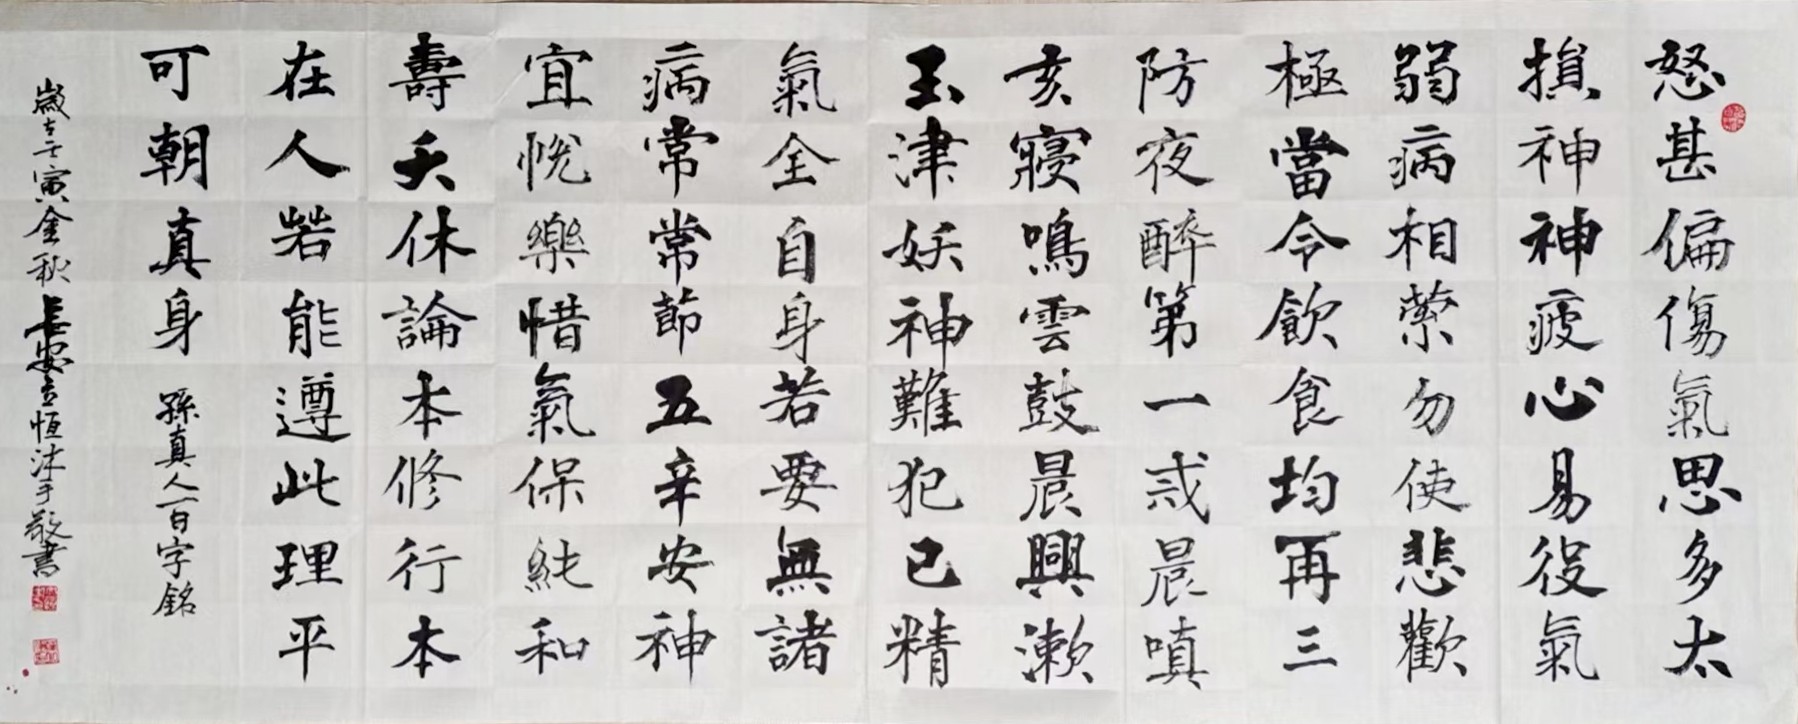 怒甚偏傷氣思多太
損神神疲心易役氣
弱病相縈勿使悲歡
極當令飲食均再三
防夜醉第一戒晨嗔
亥寢鳴雲鼓晨興漱
玉津妖神難犯已精
氣全自身若要無諸
病常常節五辛安神
宜悅樂惜氣保純和
壽夭休論本修行本
在人若能遵此理平
可朝真身
孫真人一百字銘
歲在壬寅金秋長安立恆沐手敬書